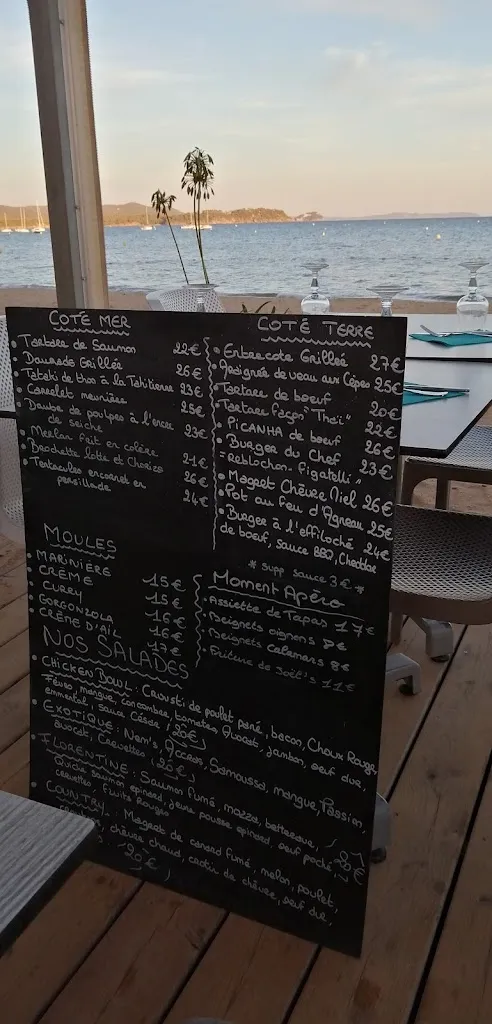 COTÉ MER
Tartare de Saumon 22€
Daurade Grillée 26€
Tataki de thon à la Tahitienne 23€
Carrelet meunière 25€
Daube de poulpes à l'encre
de seiche 23€
Merlan frit en colère 21€
Brochette lotte et Chorizo 26€
Tentacules encornet en
persillade 24€
COTÉ TERRE
Entrecote Grillée 27€
Araignée de veau aux Cèpes 25€
Tartare de boeuf 20€
Tartare façon "Thaï" 22€
PICANHA de boeuf 26€
Burger du Chef 23€
"Reblochon-figatelli"
Magret Chèvre Miel 26€
Pot au feu d'Agneau 25€
Burger à l'effiloché 24€
de boeuf, sauce BBQ, Cheddar
* supp sauce 3€ *
MOULES
MARINIÈRE 15€
CRÈME 15€
CURRY 16€
GORGONZOLA 16€
CRÈME D'AIL 17€
Moment Apéro
Assiette de Tapas 17€
Beignets oignons 8€
Beignets calamars 8€
Friture de Joël's 11€
NOS SALADES
CHICKEN BOWL : Crousti de poulet pané, bacon, Choux Rouge,
Fèves, mangue, concombre, tomates, Avocat, jambon, oeuf dur,
emmental, sauce César (20€)
EXOTIQUE : Nem's, Accras, Samoussa, mangue, Passion,
avocat, Crevettes (20€)
FLORENTINE : Saumon fumé, mozza, betterave,
Quiche saumon épinard, jeune pousse épinard, oeuf poché,
crevettes, fruits Rouges (20€)
COUNTRY : Magret de canard fumé, melon, poulet,
chèvre chaud, crotin de chèvre, oeuf dur,
20€)